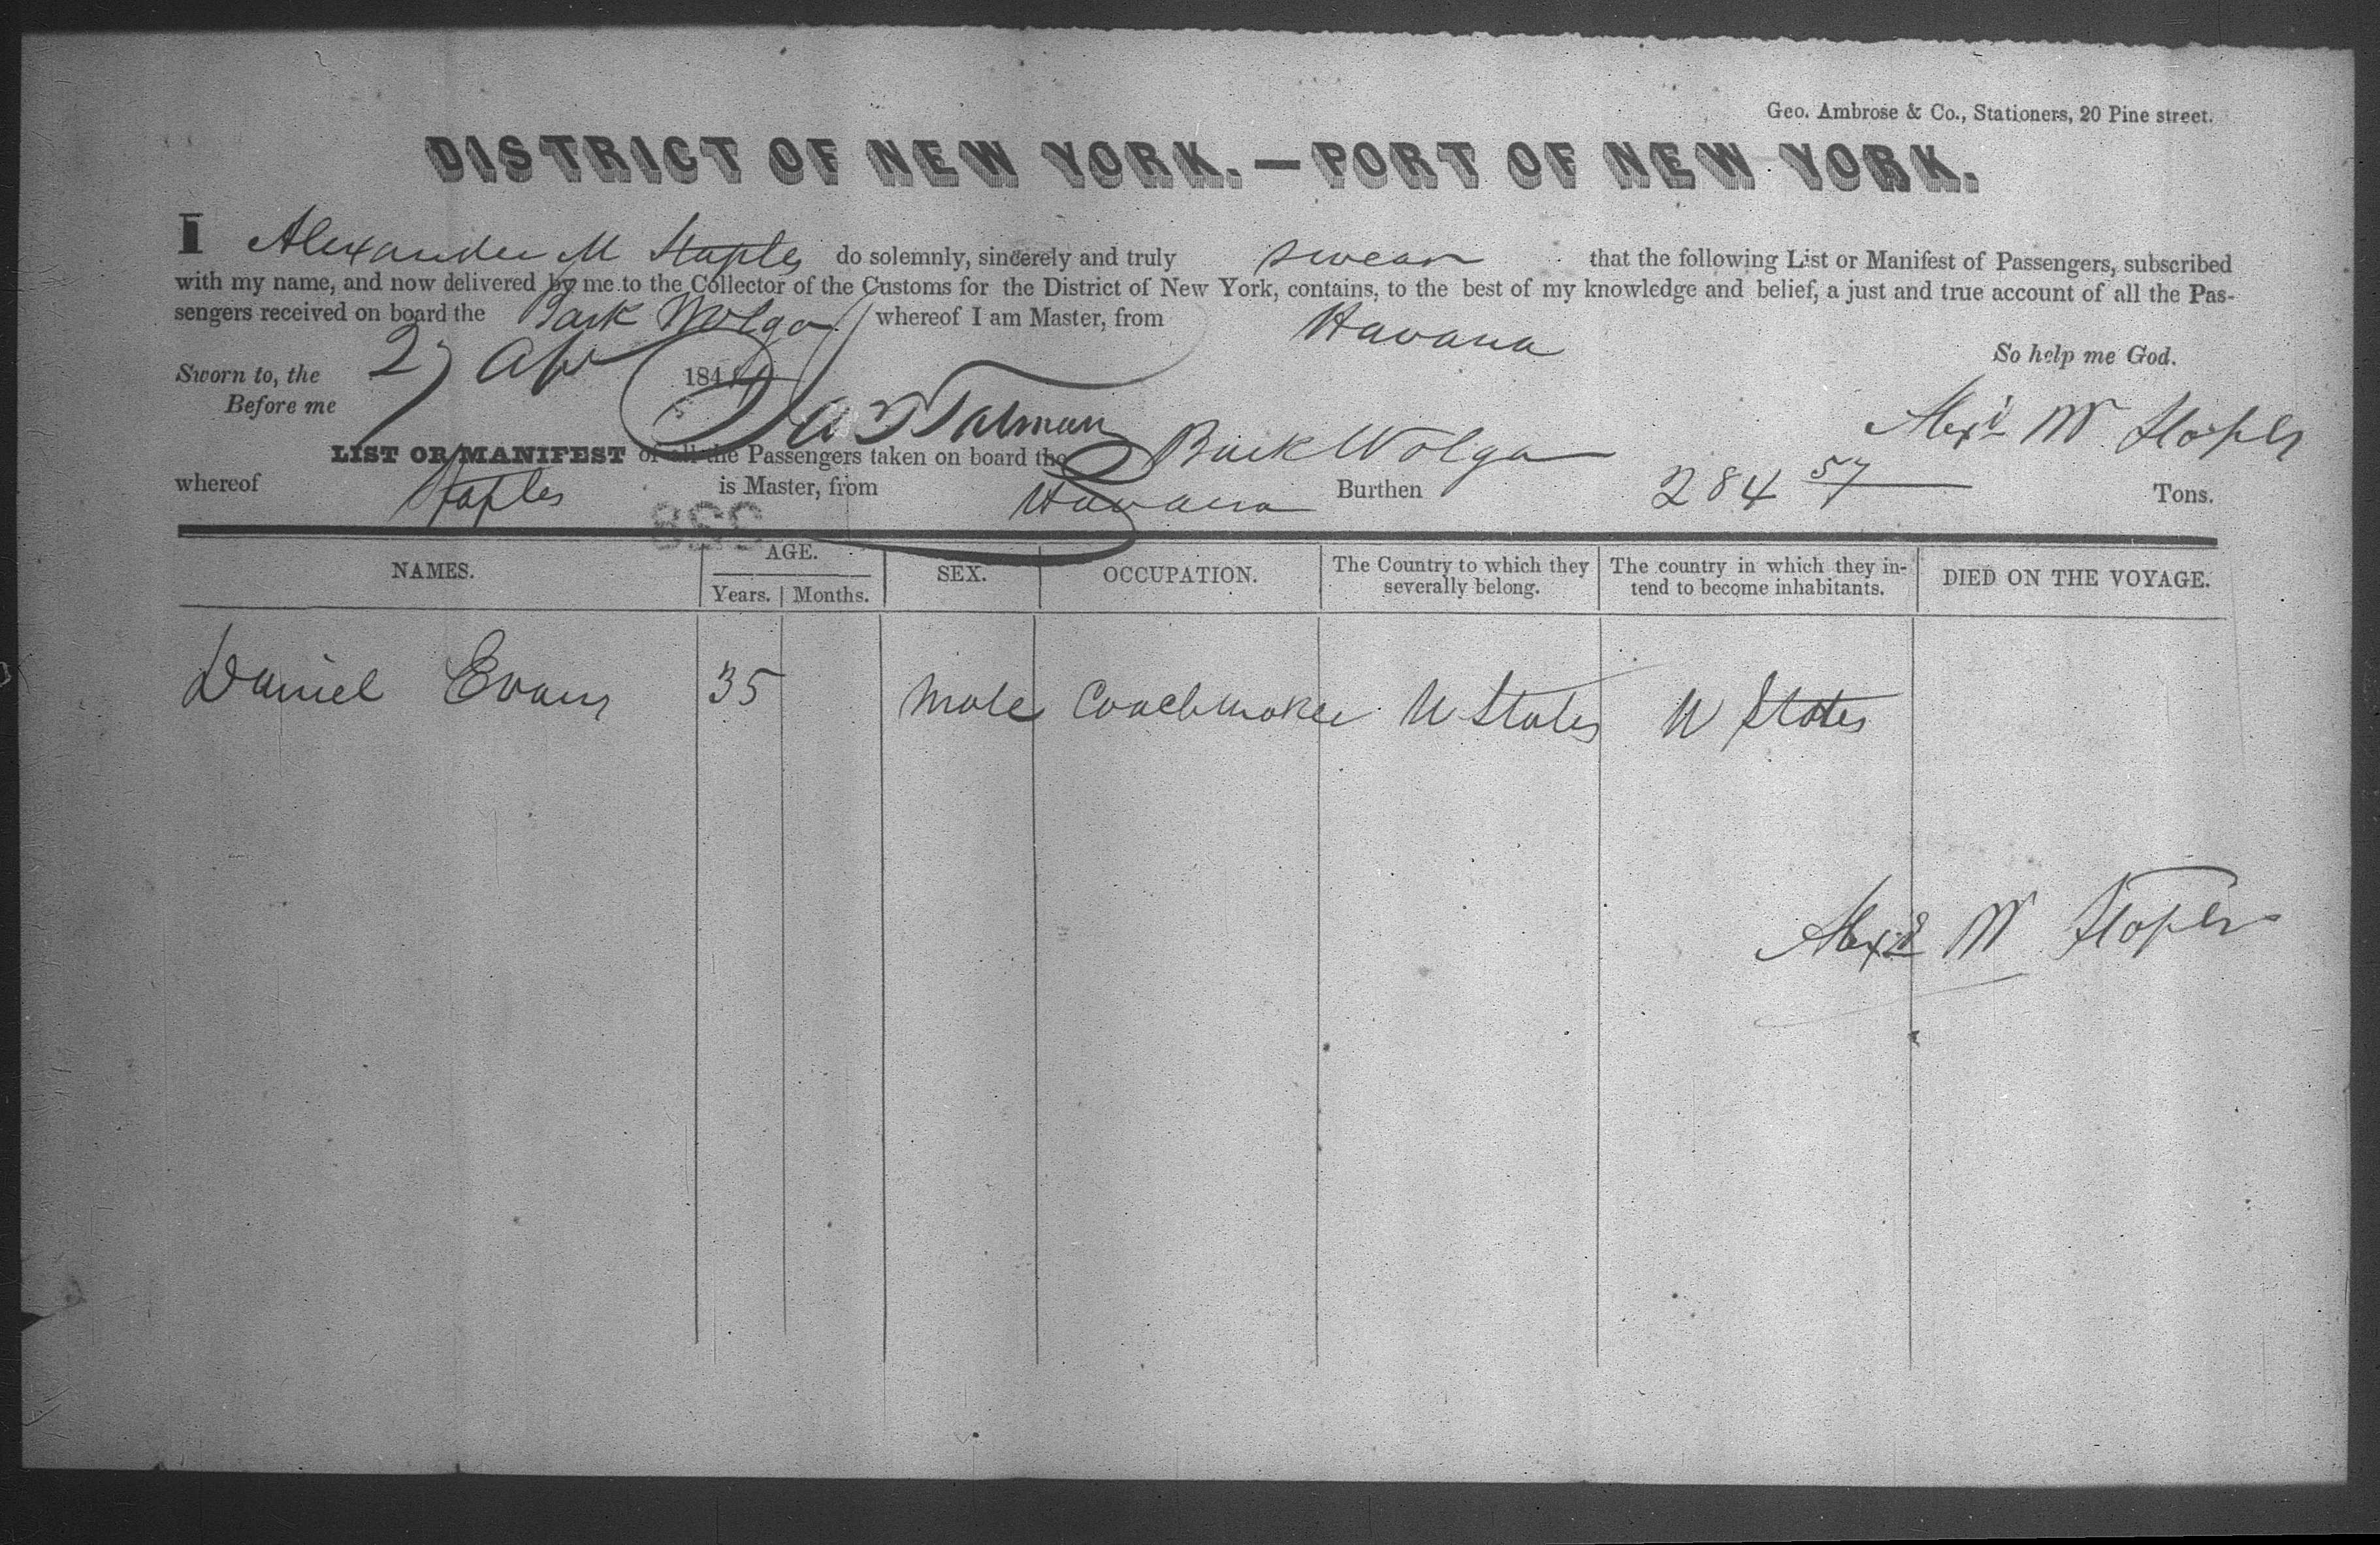 Geo. Ambrose & Co., Stationers, 20 Pine street.
DISTRICT OF NEW YORK.—PORT OF NEW YORK.
I Alexander M Staples do solemnly, sincerely and truly swear that the following List or Manifest of Passengers, subscribed
with my name, and now delivered by me to the Collector of the Customs for the District of New York, contains, to the best of my knowledge and belief, a just and true account of all the Pas-
sengers received on board the Bark Wolga whereof I am Master, from Havana
So help me God.
Sworn to, the 27 Apr 184
Before me Talman
Alexd W Staples
LIST OR MANIFEST of all the Passengers taken on board the Bark Wolga
whereof Staples is Master, from Havana Burthen 284 57 Tons.
NAMES. AGE. Years. Months. SEX. OCCUPATION. The Country to which they severally belong. The country in which they in- tend to become inhabitants. DIED ON THE VOYAGE.
Daniel Evans 35 Male Coachmaker U States U States
Alexd W Staples